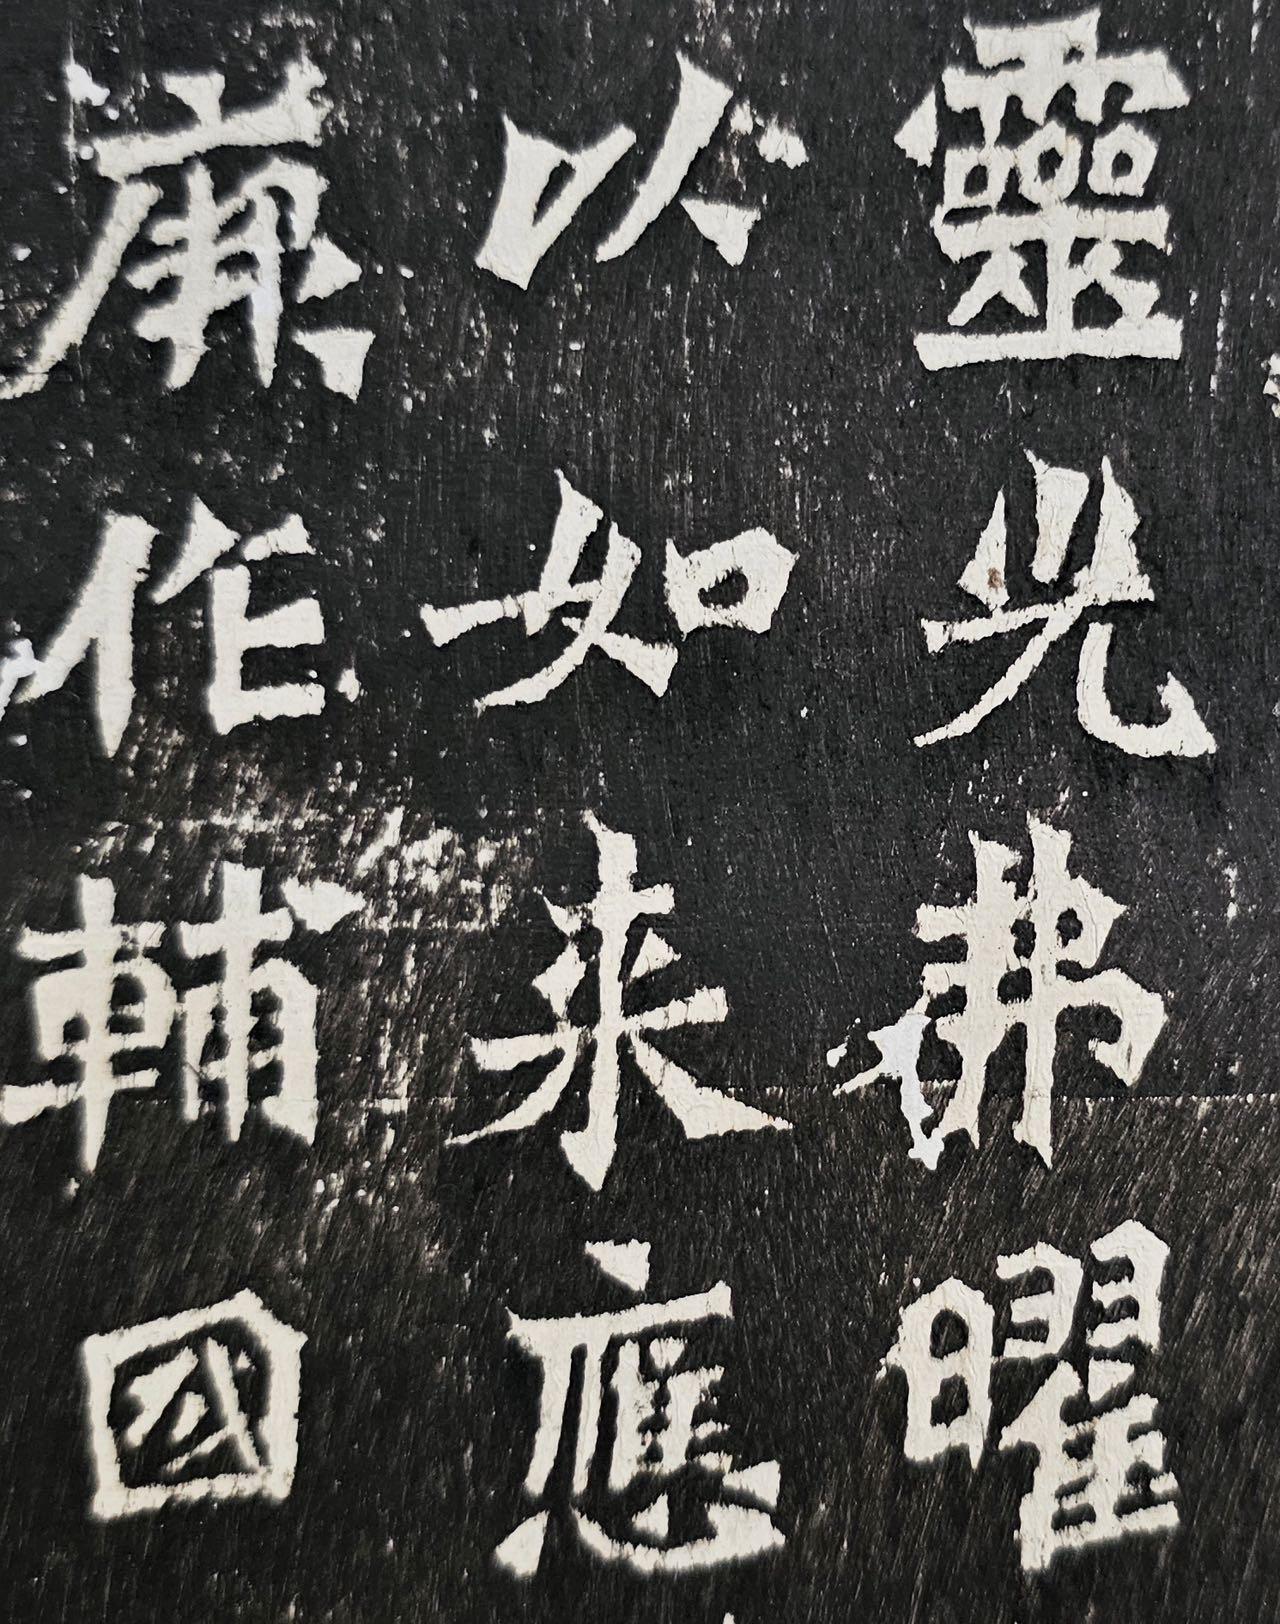 靈光弗曜
以如来應
廉作輔國